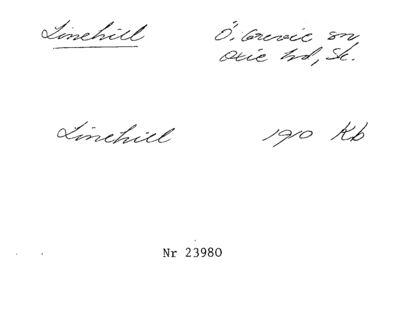 Linehill Ö. Grevie sn
Oxie hd, Sk.
Linehill 1910 Kb
Nr 23980